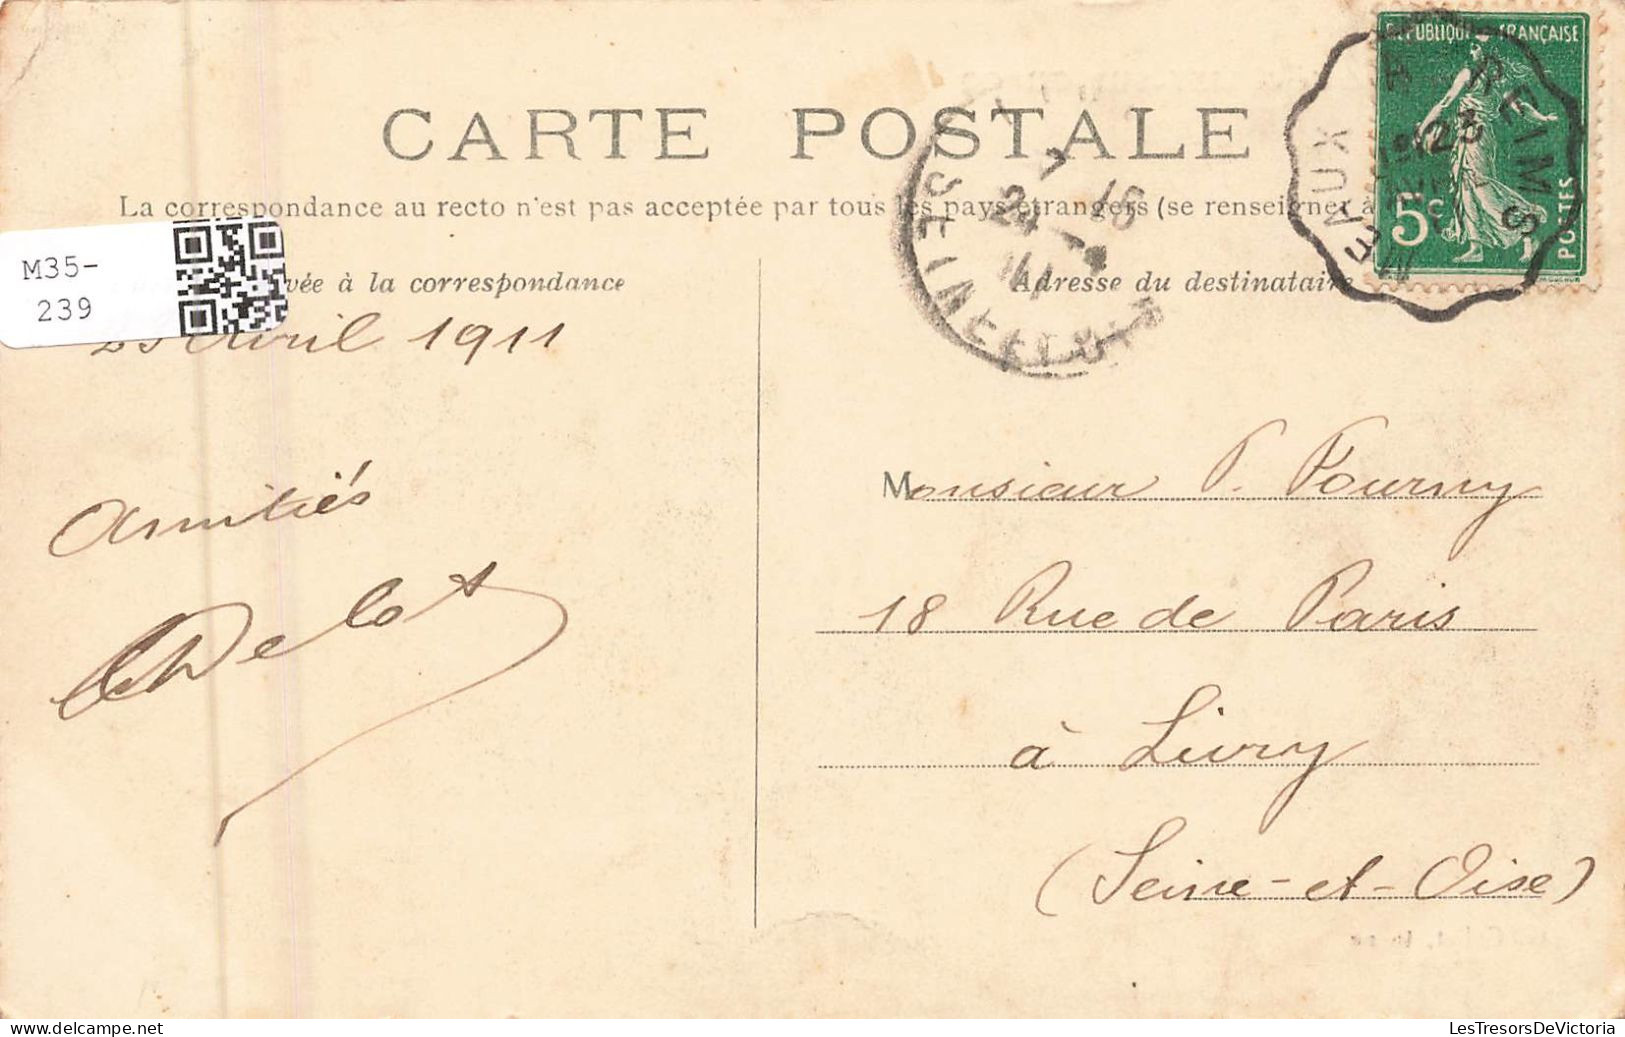 RÉPUBLIQUE FRANÇAISE
5c POSTES
MEAUX A REIMS
CARTE POSTALE
La correspondance au recto n'est pas acceptée par tous les pays étrangers (se renseigner à
vée à la correspondance
Adresse du destinataire
M35-
239
Avril 1911
SEINE-ET-OISE
Amitiés
Delot
Monsieur P. Fourny
18 Rue de Paris
à Livry
(Seine-et-Oise)
LesTresorsDeVictoria.com
Delcampe.net